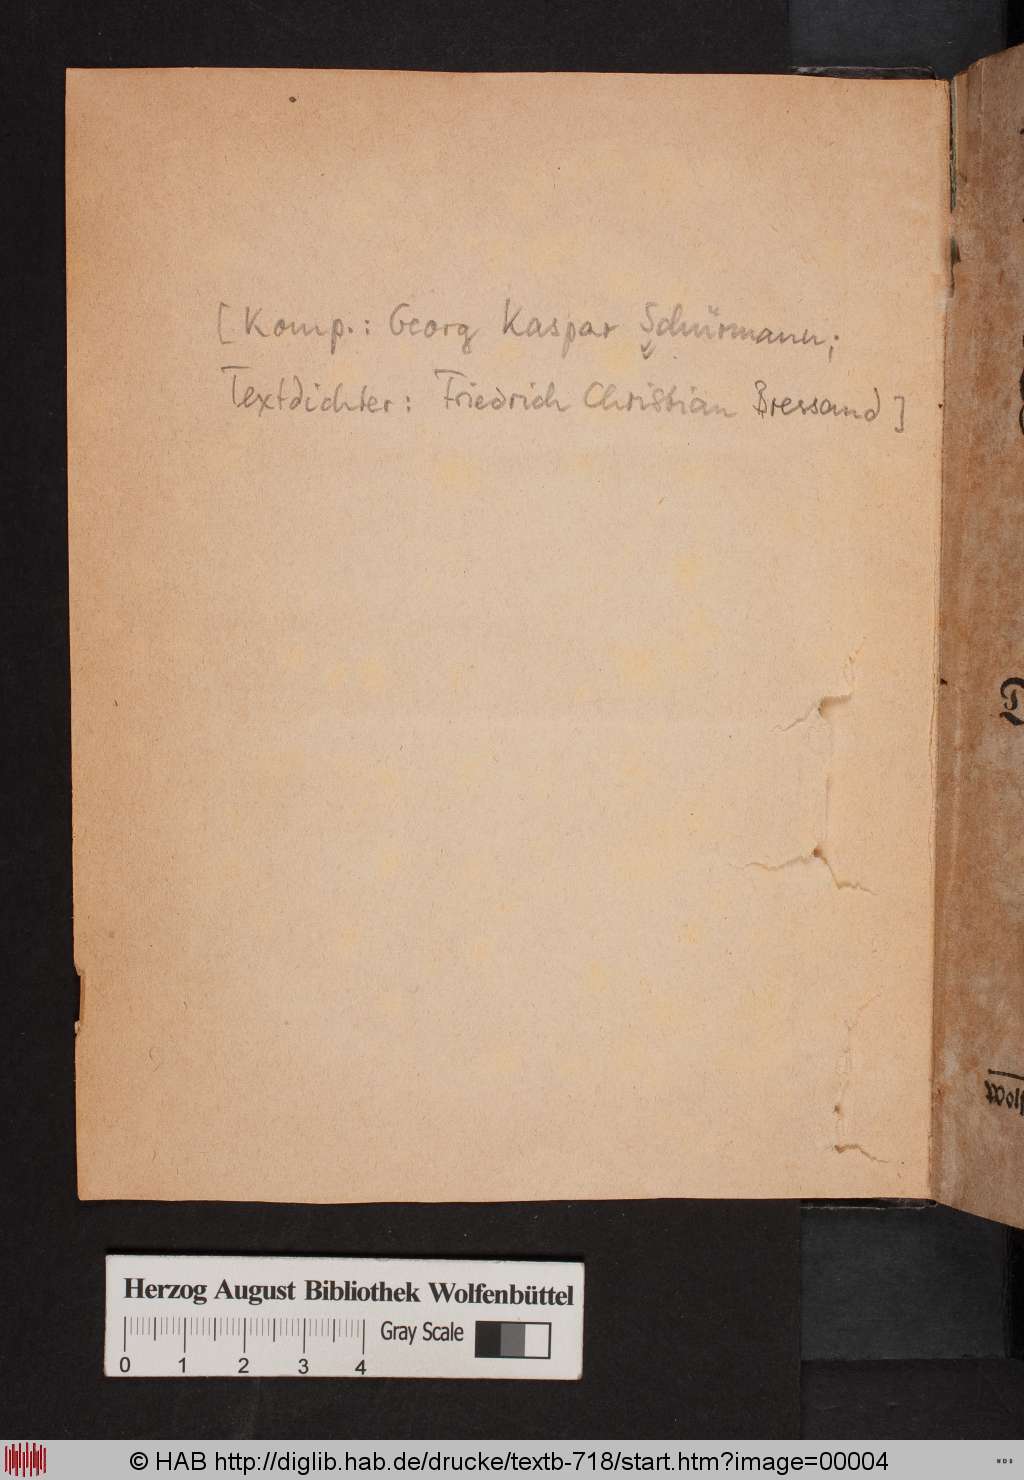 [Komp.: Georg Kaspar Schürmann;
Textdichter: Friedrich Christian Bressand]
D
Wolf
Herzog August Bibliothek Wolfenbüttel
Gray Scale
0 1 2 3 4
© HAB http://diglib.hab.de/drucke/textb-718/start.htm?image=00004